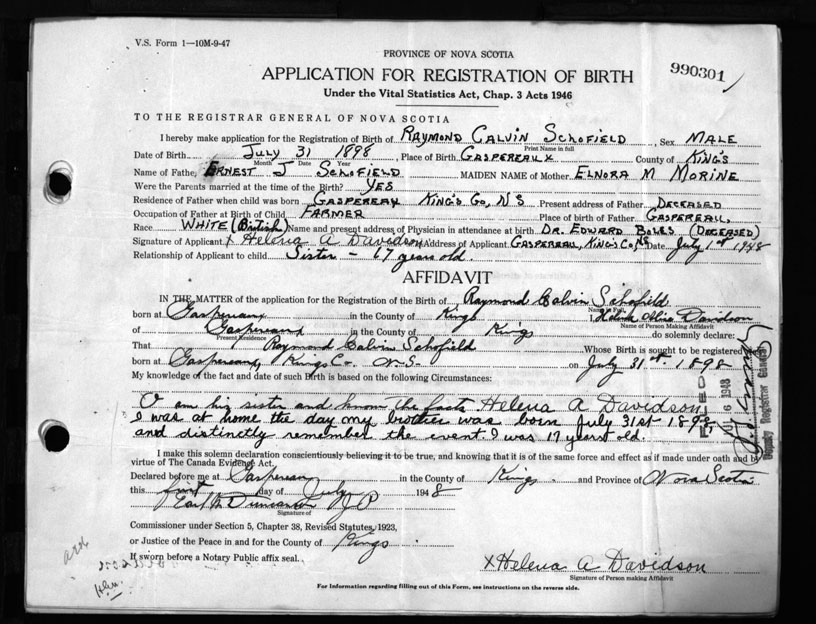 V.S. Form 1—10M-9-47
PROVINCE OF NOVA SCOTIA
990301
APPLICATION FOR REGISTRATION OF BIRTH
Under the Vital Statistics Act, Chap. 3 Acts 1946
TO THE REGISTRAR GENERAL OF NOVA SCOTIA
I hereby make application for the Registration of Birth of RAYMOND CALVIN SCHOFIELD, Sex MALE
Print Name in full
Date of Birth July 31 1898, Place of Birth GASPEREAUX County of KING'S
Month Date Year
Name of Father, ERNEST J SCHOFIELD MAIDEN NAME of Mother ELNORA M MORINE
Were the Parents married at the time of the Birth? YES
Residence of Father when child was born GASPEREAU KING'S CO, N S Present address of Father DECEASED
Occupation of Father at Birth of Child FARMER Place of Birth of Father GASPEREAU,
Race WHITE (British) Name and present address of Physician in attendance at birth DR. EDWARD (DECEASED)
Signature of Applicant x Helena A Davidson Address of Applicant GASPEREAU, KING'S CO, NS Date July 1st 1948
Relationship of Applicant to child Sister - 67 years old.
AFFIDAVIT
IN THE MATTER of the application for the Registration of the Birth of Raymond Calvin Schofield.
born at Gaspereaux in the County of Kings I, Davidson
Name of Person Making Affidavit
of Gaspereaux in the County of Kings do solemnly declare:
Present Residence
That Raymond Calvin Schofield Whose Birth is sought to be registered
born at Gaspereau, Kings Co. N.S. on July 31st 1898
My knowledge of the fact and date of such Birth is based on the following Circumstances:
I am his sister and know the facts Helena A Davidson
I was at home the day my brother was born July 31st 1898,
and distinctly remember the event. I was 17 years old.
FILED
1948
Deputy Registrar General
I make this solemn declaration conscientiously believing it to be true, and knowing that it is of the same force and effect as if made under oath and by
virtue of The Canada Evidence Act.
Declared before me at Gaspereau in the County of Kings and Province of Nova Scotia
this first day of July 1948
Earl M Duncanson J P
Signature of
Commissioner under Section 5, Chapter 38, Revised Statutes, 1923,
or Justice of the Peace in and for the County of Kings.
If sworn before a Notary Public affix seal.
x Helena A Davidson
Signature of Person making Affidavit
For Information regarding filling out of this Form, see instructions on the reverse side.